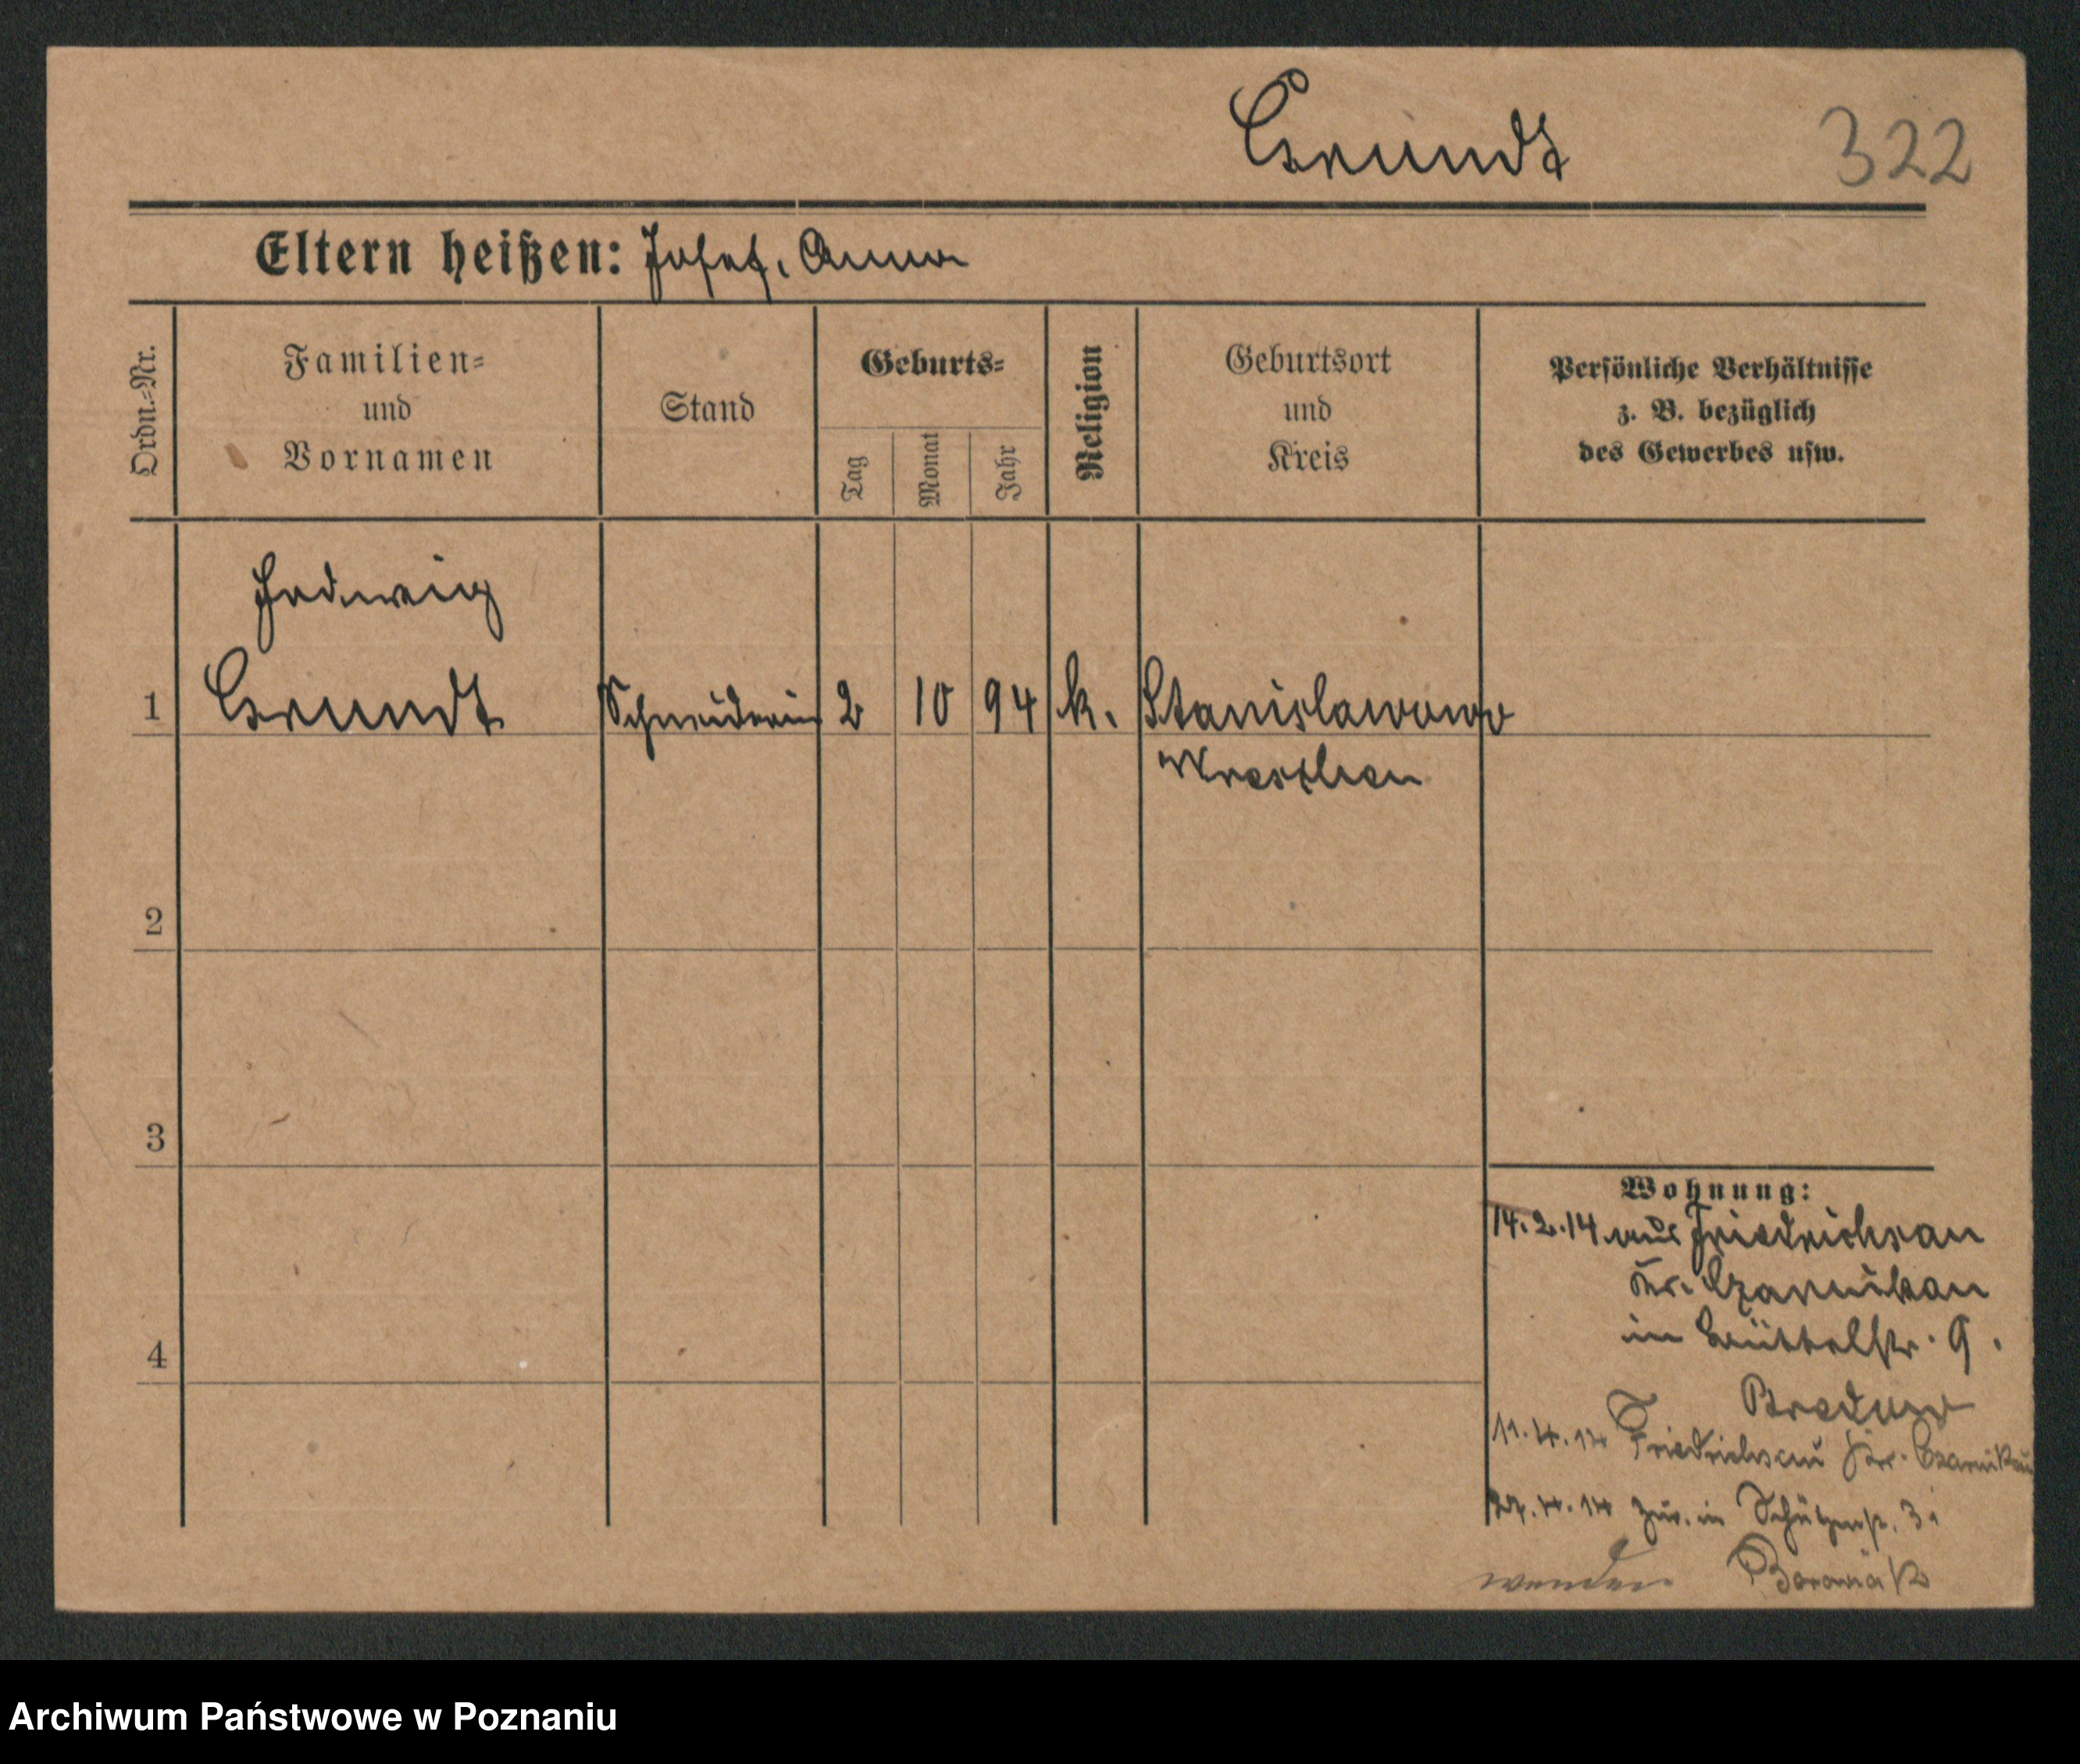 Grundt 322
Eltern heißen: Josef, Anna
Ordn.-Nr.
Familien-
und
Vornamen
Stand
Geburts-
Tag
Monat
Jahr
Religion
Geburtsort
und
Kreis
Persönliche Verhältnisse
z. B. bezüglich
des Gewerbes usw.
Hedwig
1 Grundt Schneiderin 2 10 94 k. Stanislawowo
Wreschen
2
3
4
Wohnung:
14.2.14 aus Friedrichsau
Kr. Czarnikau
in Büttelstr. 9.
Bredow
11.4.14 Friedrichsau Kr. Czarnikau
4.14 zur. in Schützenstr. 31
wenden Boraniak
Archiwum Państwowe w Poznaniu